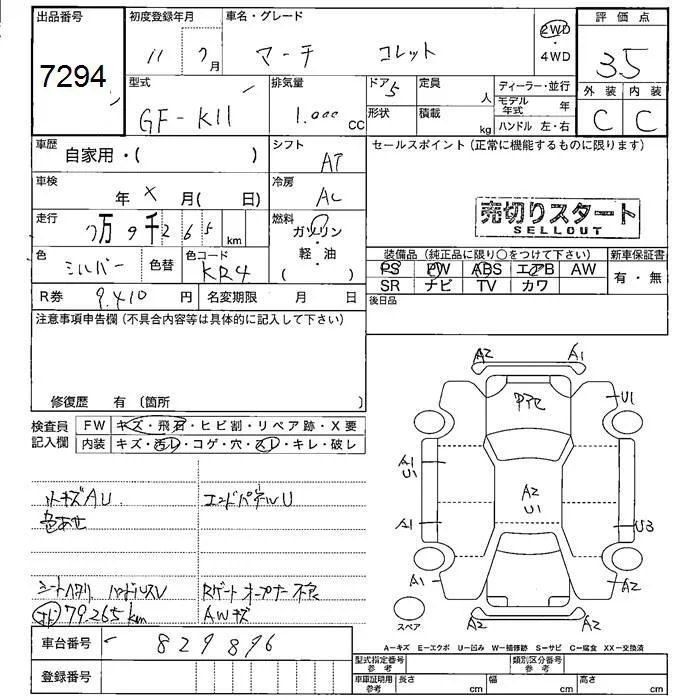 出品番号 初度登録年月 車名・グレード 評価点
7294 11 7月 マーチ コレット 2WD・4WD 3.5
型式 排気量 ドア 定員 ディーラー・並行 外装 内装
GF-K11 1.000 cc 5 人 モデル年式 年 C C
形状 積載 kg ハンドル 左・右
車歴 自家用・( ) シフト AT セールスポイント (正常に機能するものに限ります)
車検 年 X 月( 日) 冷房 AC
売切りスタート
SELLOUT
走行 7万9千265 km 燃料 ガソリン・軽・油 ( )
色 シルバー 色替 色コード KR4
装備品 (純正品に限り○をつけて下さい) 新車保証書
PS PW ABS エアB AW 有・無
SR ナビ TV カワ
R券 9.410 円 名変期限 月 日 後日品
注意事項申告欄 (不具合内容等は具体的に記入して下さい)
修復歴 有 (箇所 )
検査員記入欄 FW キズ・飛石・ヒビ割・リペア跡・X要
内装 キズ・汚レ・コゲ・穴・スレ・キレ・破レ
キズAU エンドパネルU
色あせ
シートヘタリ ハンドルスレ Rゲートオープナー不良
79.265km AWキズ
A2 A1
U1
A1
U1
A2
U1
A1 U3
A1 A2
スペア A2 A2
A-キズ E-エクボ U-凹み W-補修跡 S-サビ C-腐食 XX-交換済
車台番号 - 829896
型式指定番号 参考 類別区分番号 参考
登録番号
車庫証明用 参考 長さ cm 幅 cm 高さ cm